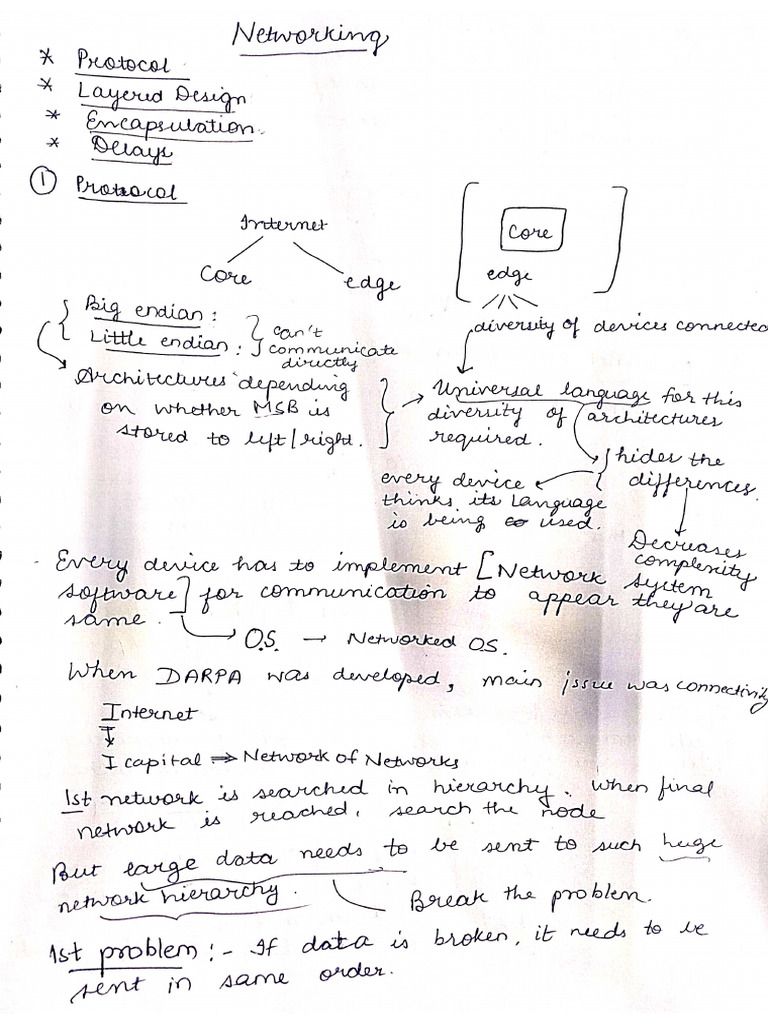 Networking
* Protocol
* Layered Design
* Encapsulation.
* Delays
① Protocol
Internet
Core edge
Core
edge
diversity of devices connected
Big endian :
Little endian :
can't
communicate
directly
Architectures depending
on whether MSB is
stored to left/right.
Universal language for this
diversity of architectures
required.
hides the
differences.
Decreases
complexity
every device
thinks its language
is being used.
Every device has to implement [Network system
software] for communication to appear they are
same.
O.S. → Networked O.S.
When DARPA was developed, main issue was connectivity
Internet
I capital ⇒ Network of Networks
1st network is searched in hierarchy. When final
network is reached, search the node
But large data needs to be sent to such huge
network hierarchy.
Break the problem.
1st problem :- If data is broken, it needs to be
sent in same order.